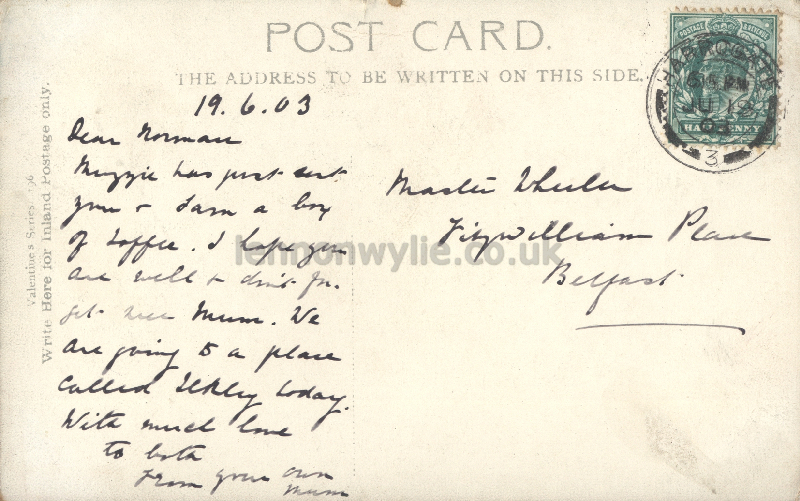 POST CARD.
THE ADDRESS TO BE WRITTEN ON THIS SIDE.
POSTAGE & REVENUE
HARROGATE
6 15 PM
JU 19
03
3
HALFPENNY
Valentine's Series
Write Here for Inland Postage only.
19.6.03
Dear Norman
Muzzie has just sent
you & Sam a box
of Toffee. I hope you
are well & don't for-
get your Mum. We
are going to a place
called Ilkley today.
With much love
to both
From your own
Mum
Master Wheeler
Fitzwilliam Place
Belfast
lennonwylie.co.uk